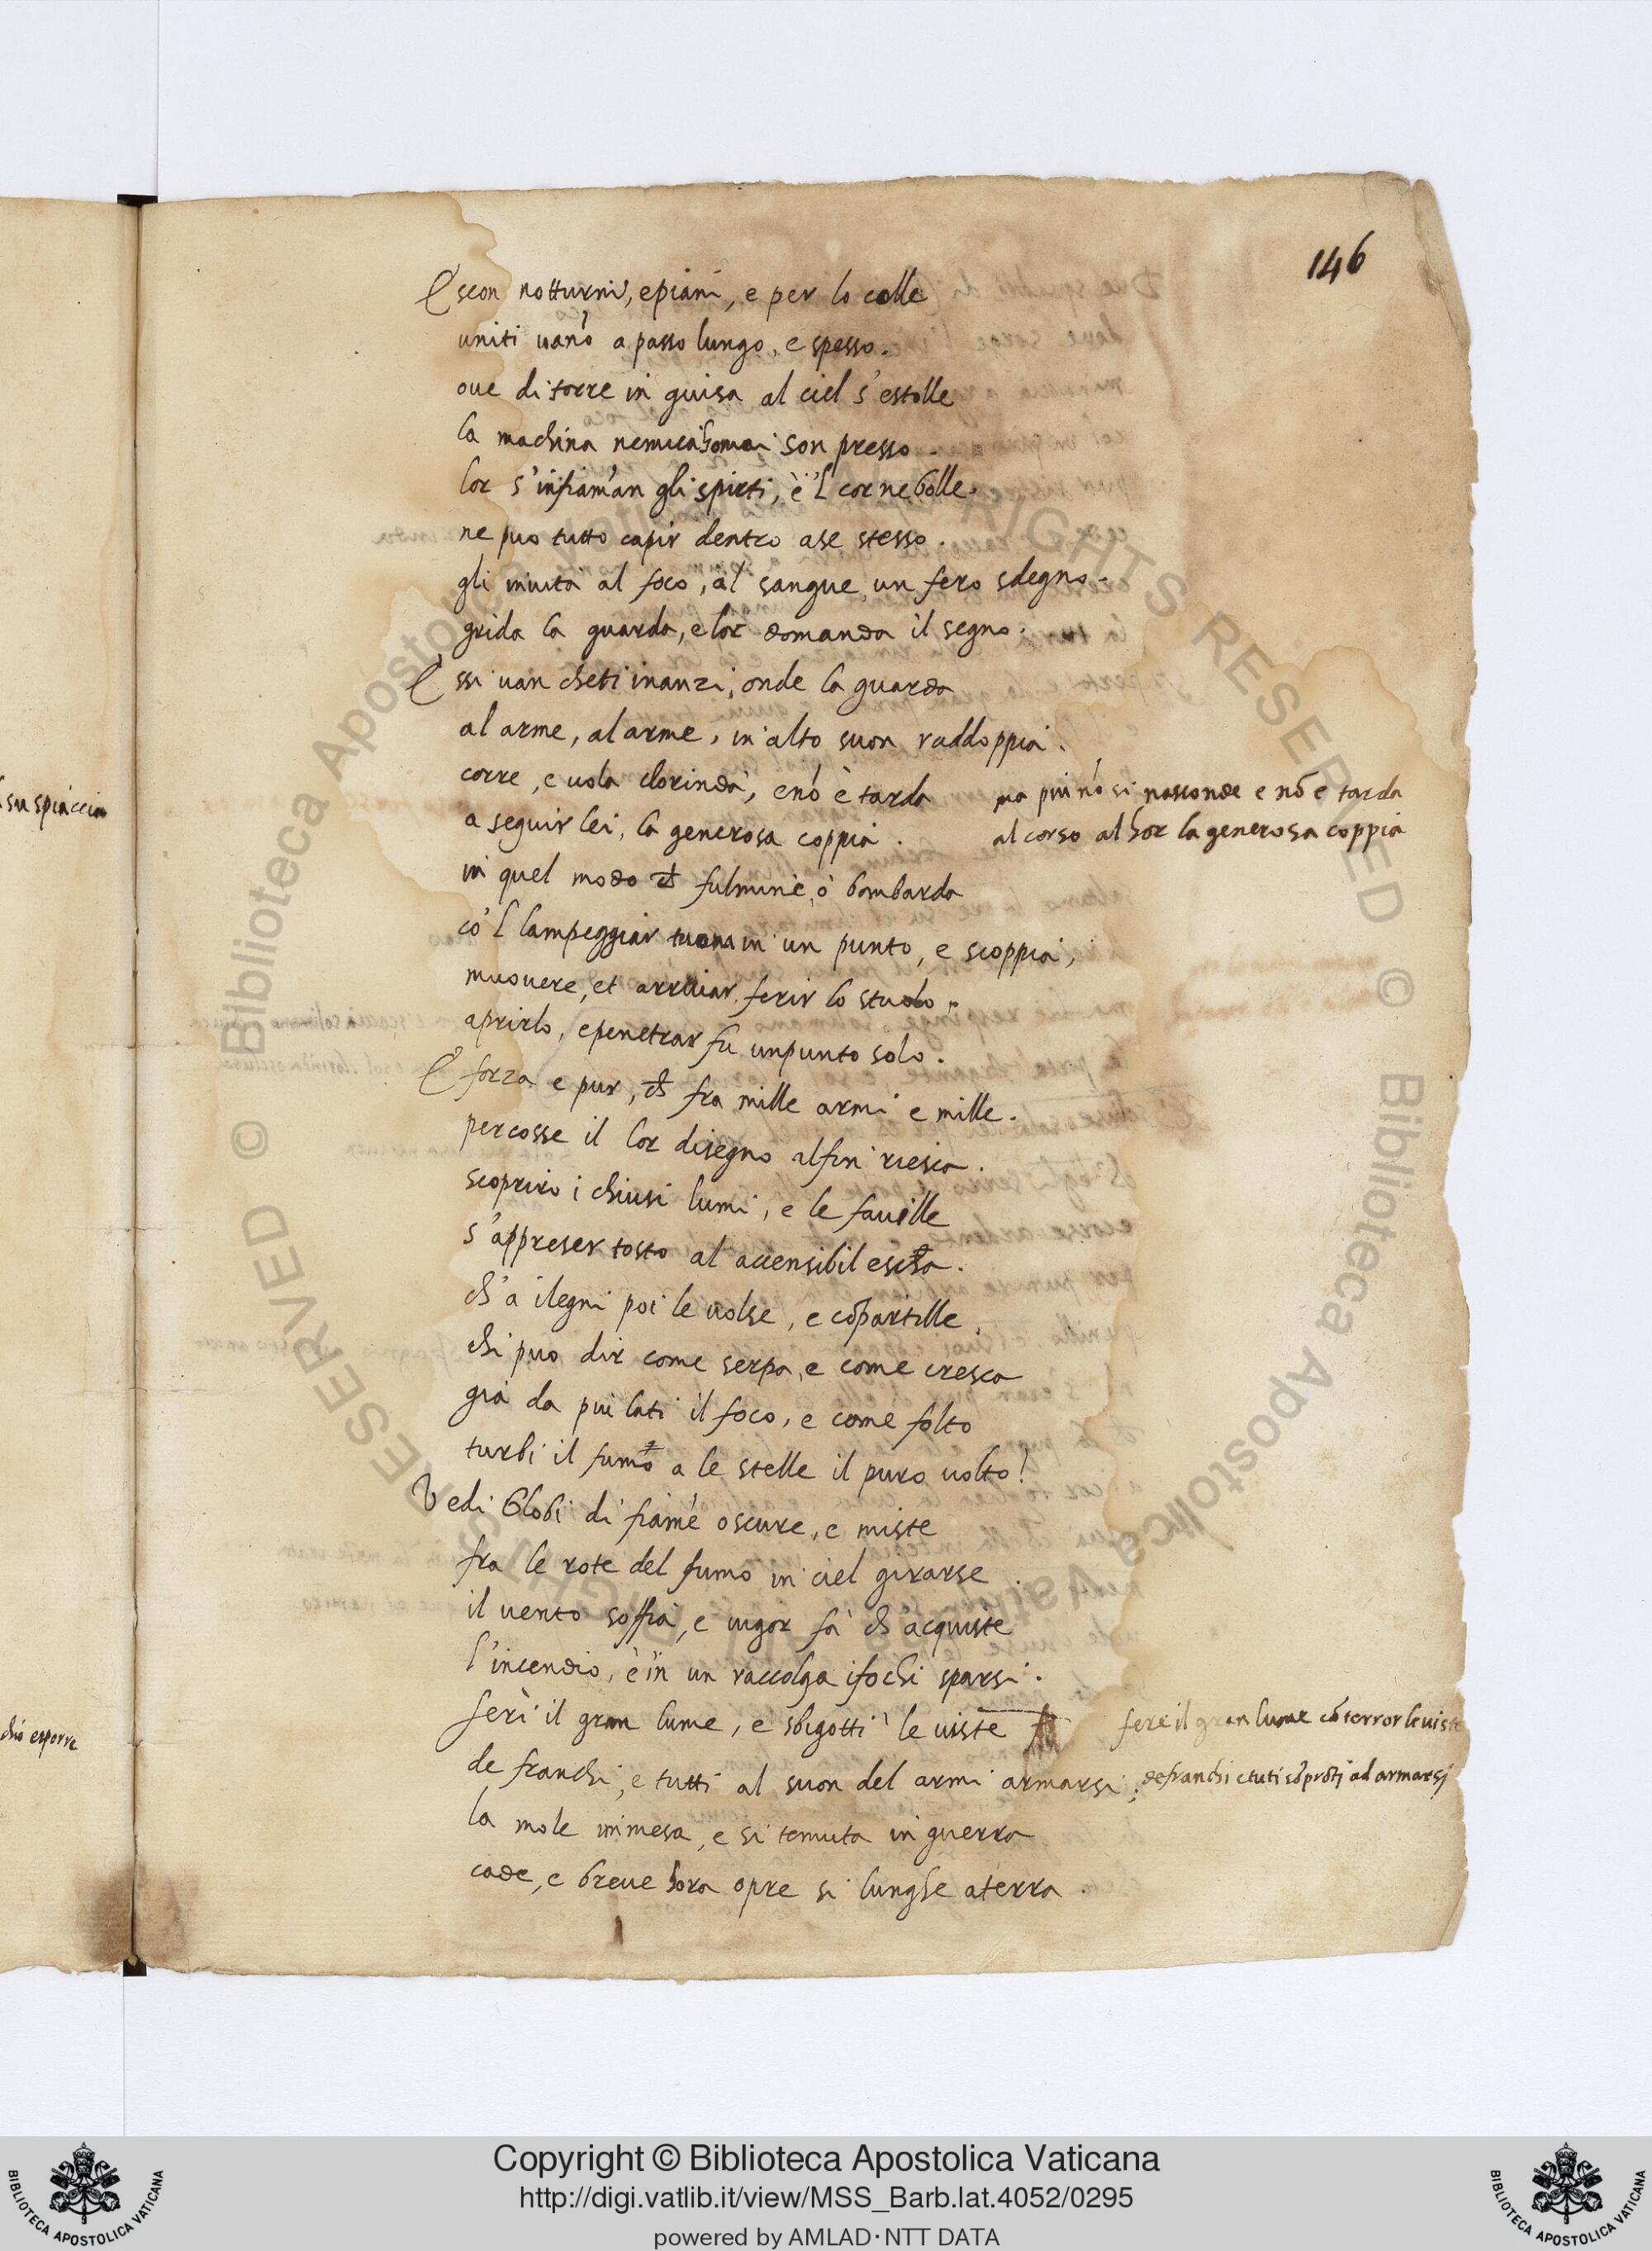 146
Escon notturni, e piani, e per lo colle
uniti uano a passo lungo, e spesso.
oue di torre in guisa al ciel s'estolle
la machina nemica homai son presso.
lor s'infiaman gli spirti, e 'l cor ne bolle.
ne puo tutto capir dentro a se stesso.
gli inuita al foco, al sangue un fero sdegno.
grida la guarda, e lor domanda il segno.
Essi uan cheti inanzi, onde la guarda
al arme, al arme, in alto suon raddoppia.
corre, e uola clorinda, e nō è tarda
a seguir lei, la generosa coppia.
ma piu nō si nasconde e nō e tarda
al corso al hor la generosa coppia
in quel modo ch fulmine, ò bombarda
cō 'l lampeggiar tuona in un punto, e scoppia,
muouere, et arriuar, ferir lo stuolo,
aprirlo, e penetrar fu un punto solo.
E forza e pur, ch fra mille armi e mille.
percosse il lor disegno al fin riesca.
scopriro i chiusi lumi, e le fauille
s'appreser tosto al accensibil escha.
ch'a i legni poi le uolse, e cōpartille,
chi puo dir come serpa, e come cresca
già da piu lati il foco, e come folto
turbi il fumo a le stelle il puro uolto!
Vedi Globi di fiame oscure, e miste
fra le rote del fumo in ciel girarse
il uento soffia, e uigor fà ch'acquiste
l'incendio, e in un raccolga i fochi sparsi.
ferì il gran lume, e sbigottì le uiste
fere il gran lume cō terror le uiste
de franchi, e tutti al suon del armi armarsi;
de franchi e tuti sō prōti ad armarsi
la mole immesa, e si temuta in guerra
cade, e breue hora opre si lunghe aterra.
su spiaccia
chio esporre
Copyright © Biblioteca Apostolica Vaticana
http://digi.vatlib.it/view/MSS_Barb.lat.4052/0295
powered by AMLAD·NTT DATA